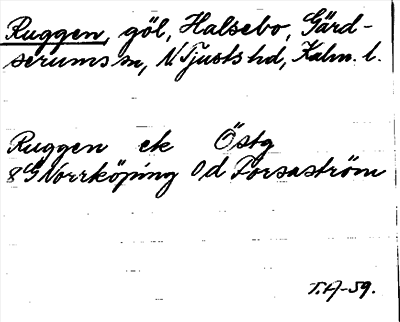 Ruggen, göl, Halsebo, Gärd-
serums sn, N Tjusts hd, Kalm. l.
Ruggen ek Östg
8G Norrköping 0d Forsaström
T.A-59.